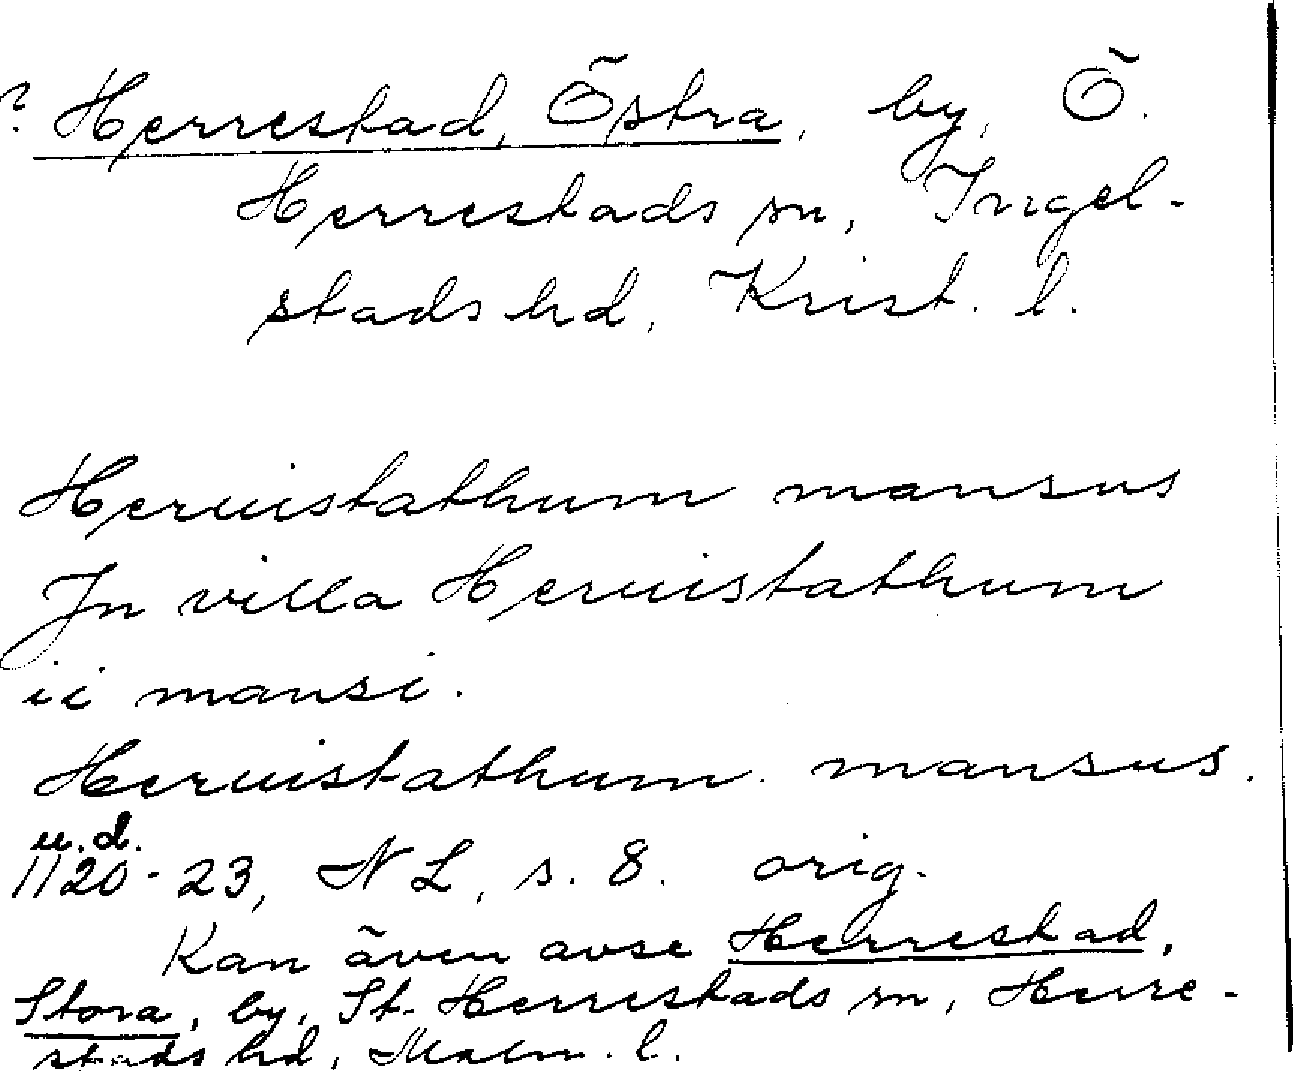 ? Herrestad, Östra, by, Ö.
Herrestads sn, Ingel-
stads hd, Krist. l.
Heruistathum mansus
Jn villa Heruistathum
ii mansi.
Heruistathum. mansus.
u.d.
1120-23, NL, s. 8. orig.
Kan även avse Herrestad,
Stora, by, St. Herrestads sn, Herre-
stads hd, Malm. l.